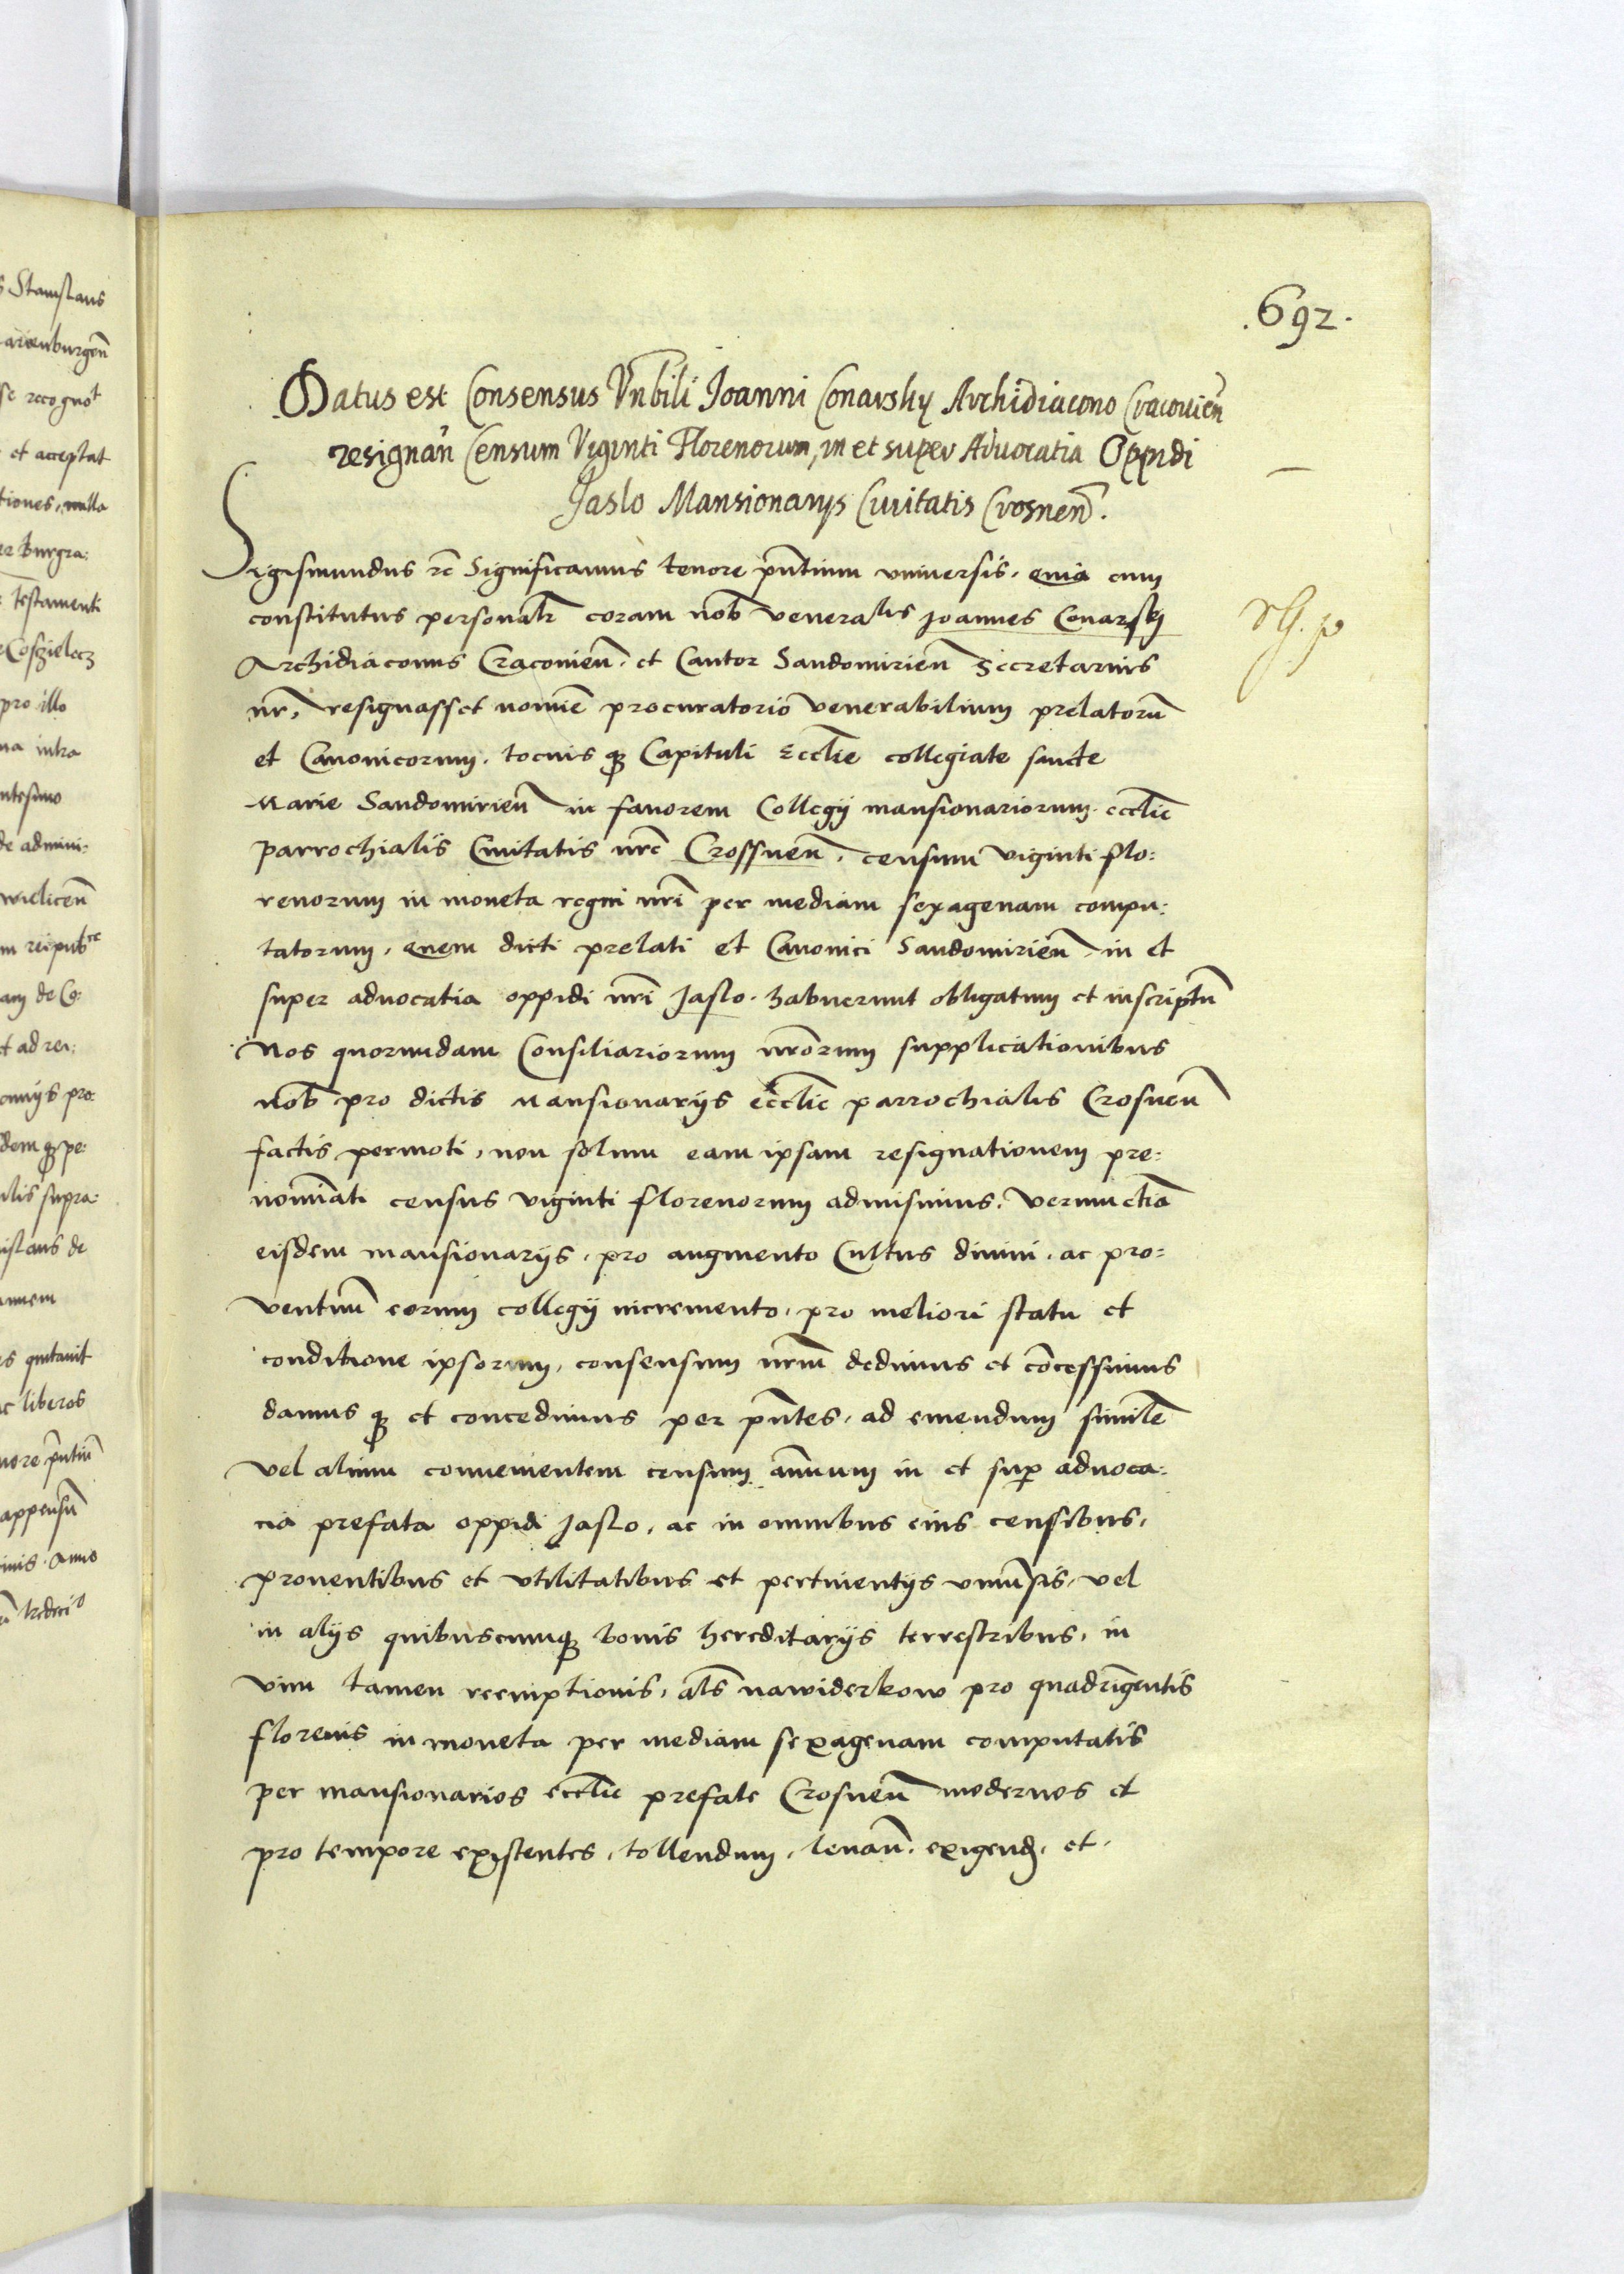 .692.
Datus est Consensus Vnbili Joanni Conarsky Archidiacono Cracouien̄
resignan̄ Censum Viginti Florenorum, in et super Aduocatia Oppidi
Jaslo Mansionarijs Ciuitatis Crosnen̄.
Sigismundus rc̄ Significamus tenore pn̄tium vniuersis, quia cum
constitutus personalr̄ coram nob̄ veneralis Joannes Conarski
Archidiaconus Cracouien̄. et Cantor Sandomirien̄ Secretarius
nr̄, resignasset nomīe procuratorio venerabilium prelatorū
et Canonicorum, tocius qꝫ Capituli Eccl̄ie collegiate sancte
Marie Sandomirien̄ in fauorem Collegij mansionariorum eccl̄ie
parrochialis Ciuitatis nr̄e Crossnen̄, censum viginti flo:
renorum in moneta regni nr̄i per mediam sexagenam compu:
tatorum, quem dicti prelati et Canonici Sandomirien̄ in et
super aduocatia oppidi nr̄i Jaslo. habuerunt obligatum et inscriptū
Nos quorundam Consiliariorum nr̄orum supplicationibus
nob̄ pro dictis Mansionarijs eccl̄ie parrochialis Crosnen̄
factis permoti, non solum eam ipsam resignationem pre:
nomīati census viginti florenorum admisimus, verumetiā
eisdem mansionarijs, pro augmento Cultus diuini, ac pro:
ventuū eorum collegij incremento, pro meliori statu et
conditione ipsorum, consensum nr̄um dedimus et cōcessimus
damus qꝫ et concedimus per pn̄tes, ad emendum similē
vel alium conuenientem censum annuum in et suꝑ aduoca:
cia prefata oppidi Jaslo, ac in omnibus eius censibus,
prouentibus et vtilitatibus et pertinentijs vniūsis, vel
in alijs quibuscumqꝫ bonis hereditarijs terrestribus, in
vim tamen reemptionis, al̄s nawiderkow pro quadrīgentis
florenis in moneta per mediam sexagenam computatis
per mansionarios eccl̄ie prefate Crosnen̄ modernos et
pro tempore existentes, tollendum, leuan̄. exigend̄. et.